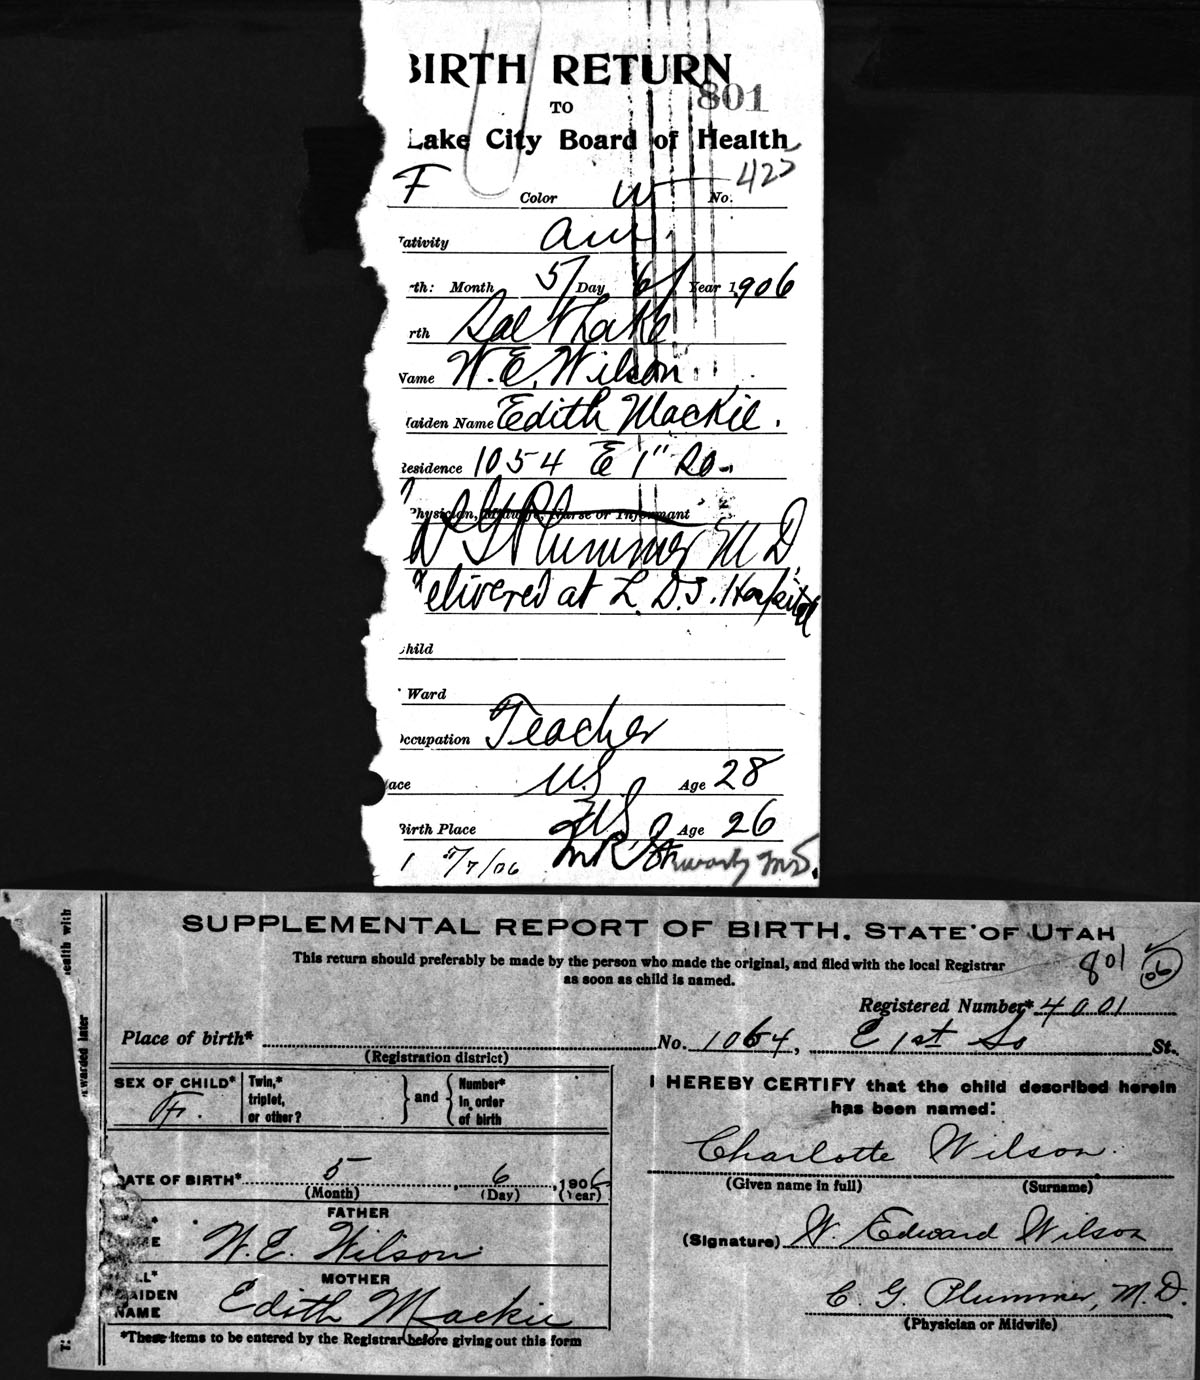 BIRTH RETURN
801
TO
Lake City Board of Health
F Color W No. 425
ativity am.
rth: Month 5/ Day 6/ Year 1906
rth Salt Lake
Name W. E. Wilson
aiden Name Edith Mackie.
Residence 1054 E 1" So.
Physician, Midwife, Nurse or Informant
G Plummer M D.
elivered at L. D. S. Hospital
hild
Ward
ccupation Teacher
lace U.S. Age 28
Birth Place U.S. Age 26
5/7/06 M.D.
SUPPLEMENTAL REPORT OF BIRTH. STATE OF UTAH
This return should preferably be made by the person who made the original, and filed with the local Registrar
as soon as child is named.
801 06
Registered Number* 4001
Place of birth* No. 1054, E 1st So St.
(Registration district)
SEX OF CHILD* F. Twin,* triplet, or other? and Number* in order of birth
I HEREBY CERTIFY that the child described herein
has been named:
Charlotte Wilson.
(Given name in full) (Surname)
DATE OF BIRTH* 5, 6, 1906
(Month) (Day) (Year)
FATHER
W. E. Wilson
(Signature) W. Edward Wilson
MOTHER
MAIDEN
NAME Edith Mackie
C. G. Plummer, M.D.
(Physician or Midwife)
*These items to be entered by the Registrar before giving out this form
ealth with
warded later